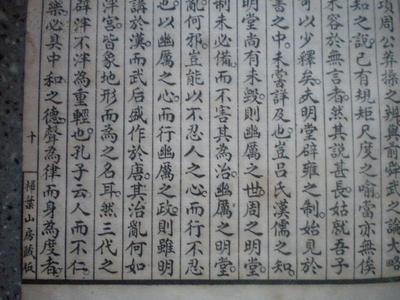 項周公莽操之辨與前舜武之論大略
知之説已有規矩尺度之喻當亦無俟
未容於無言者然其説甚長姑就吾子
可以少釋矣夫明堂辟雍之制始見於
書之中未嘗詳及也豈吕氏漢儒之知
明堂尚有未毁則幽厲之世周之明堂
制未必備而不害其為治幽厲之明堂
亂何邪豈能以不忍人之心而行不忍
也以幽厲之心而行幽厲之政則雖明
講於漢而武后盛作於唐其治亂何如
泮宫皆象地形而為之名耳然三代之
辟泮不泮為重輕也孔子云人而不仁
樂必具中和之德聲為律而身為度者
十
掃葉山房藏板